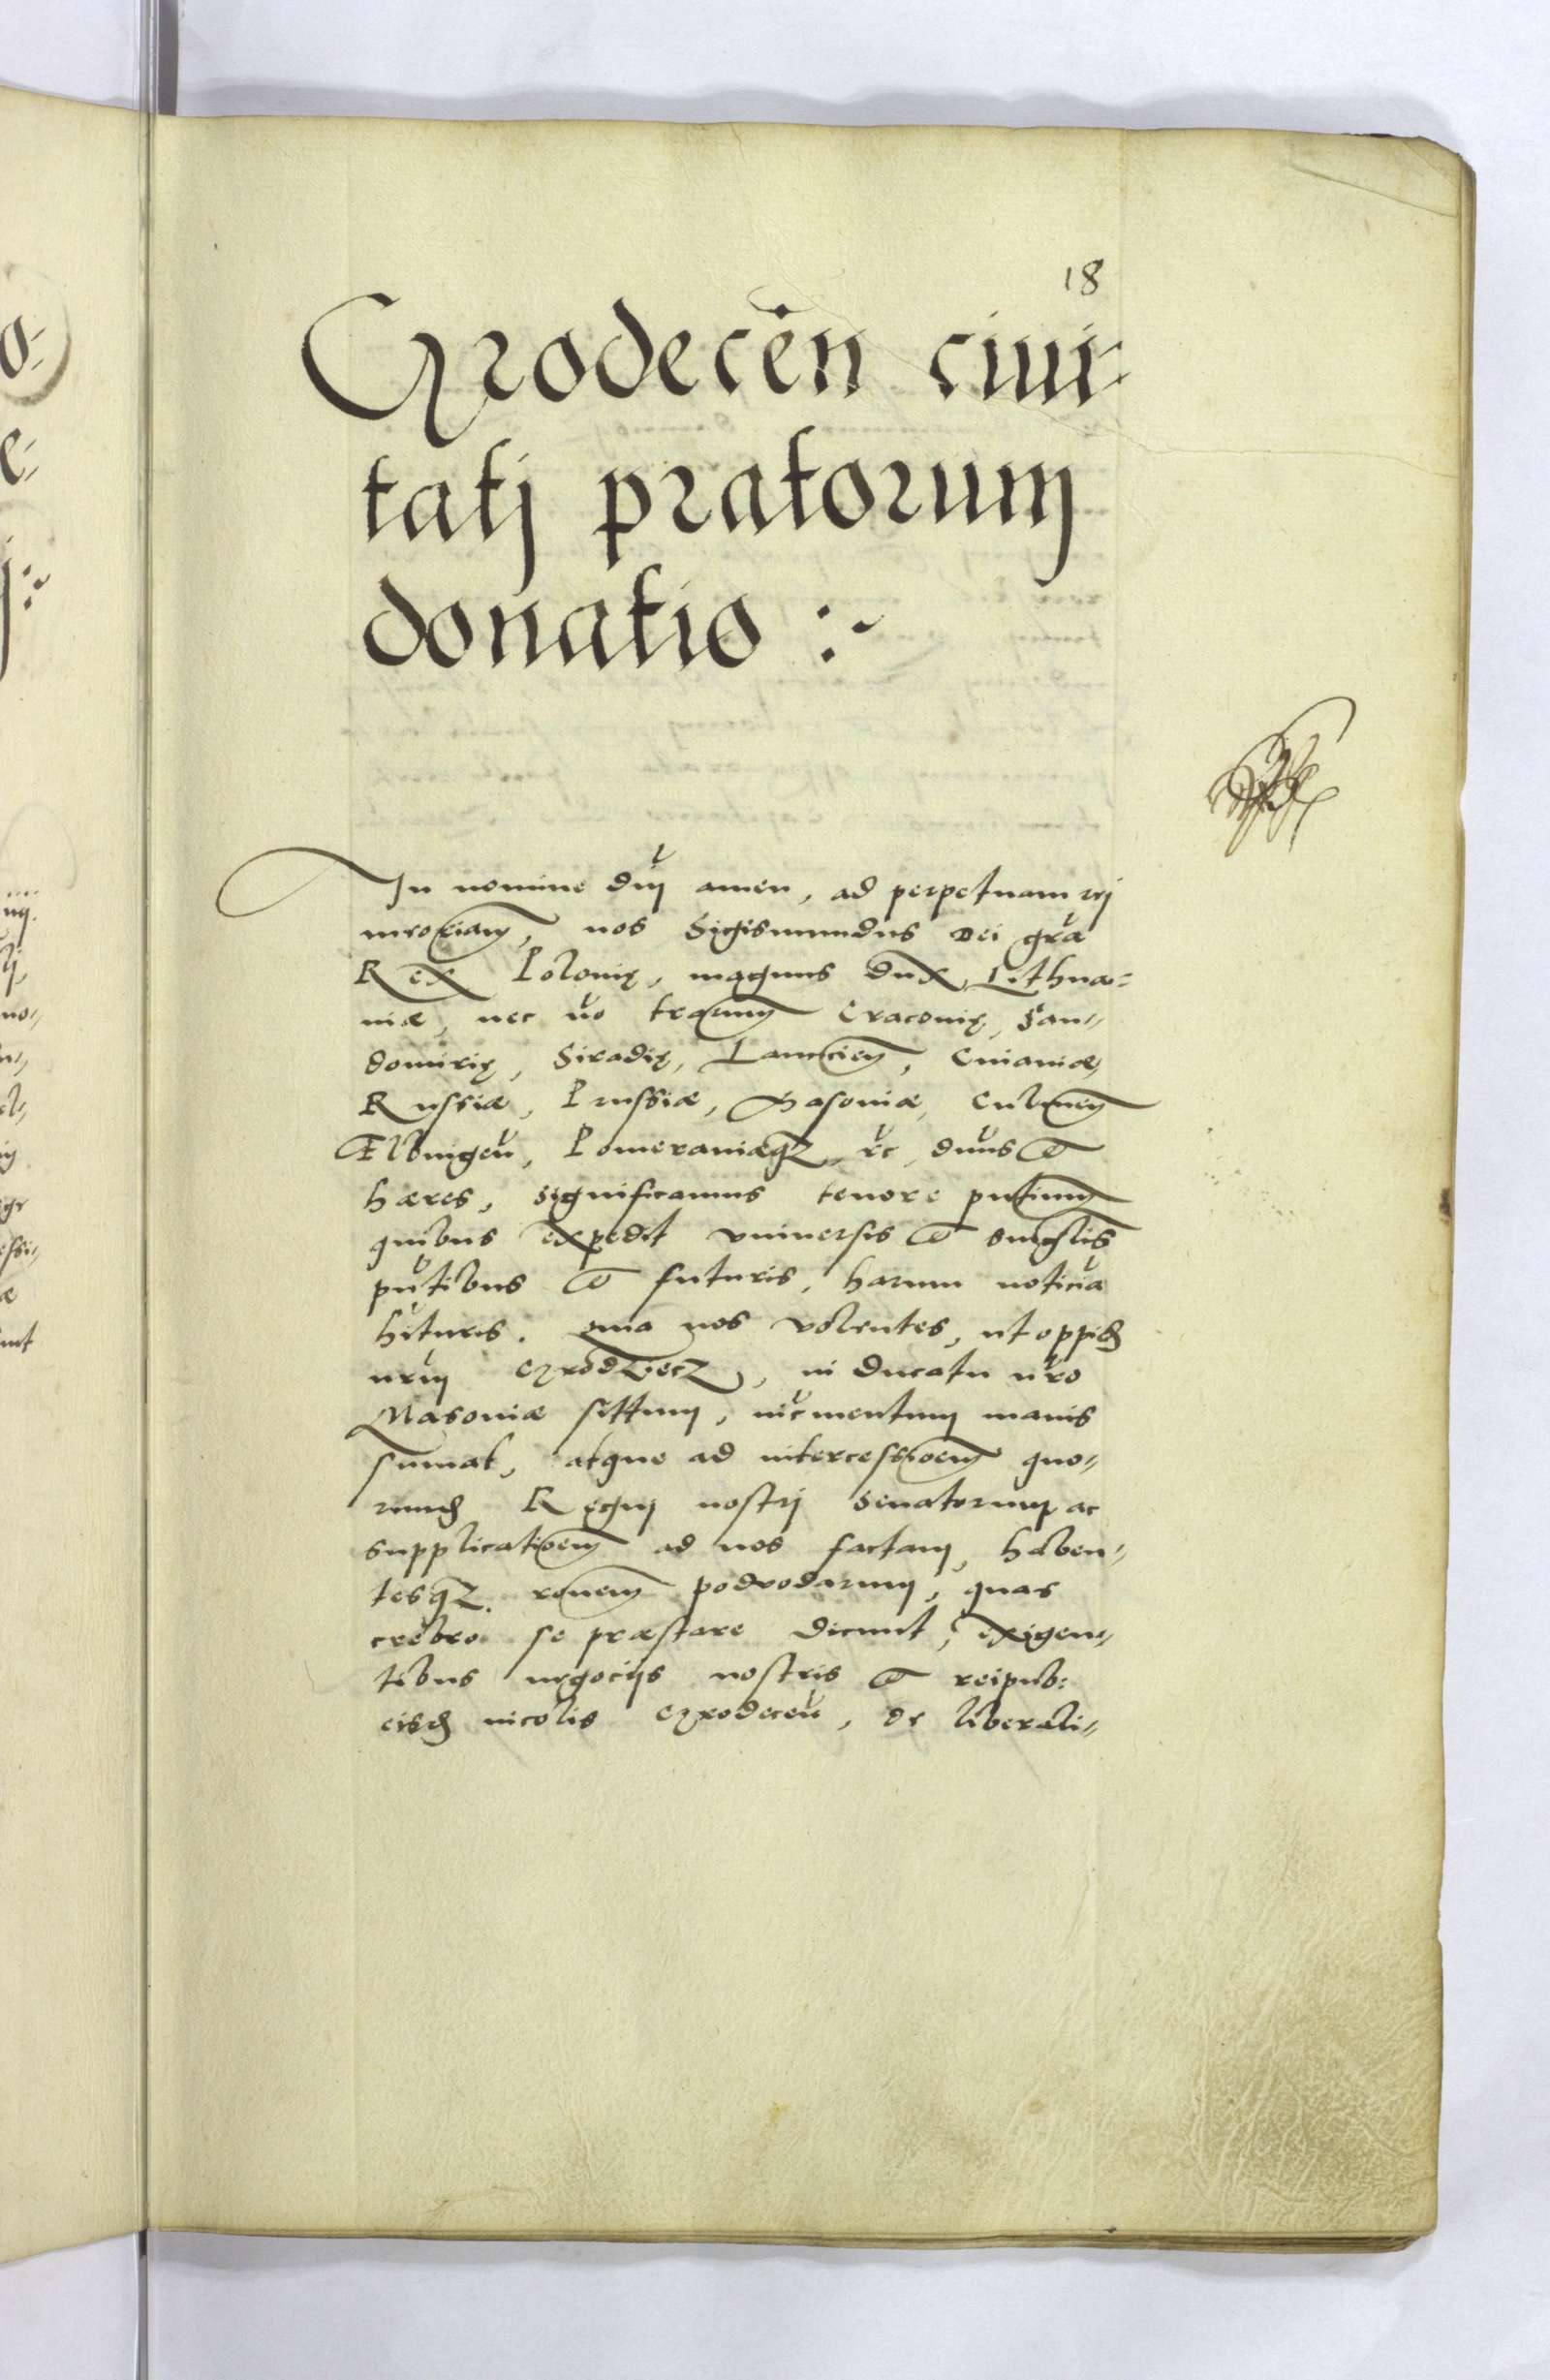 18
Grodecen̄ ciui-
tatj pratorum
donatio :~
In nomine dn̄j amen, ad perpetuam rej
mroriam, nos Sigismundus Dei gr̄a
Rex Polonię, magnus dux Lithua=
niæ, nec no trarum Cracouię, San„
domirię, Siradię, Lanncien, Cuiauiæ,
Russiæ, Prussiæ, Masouiæ, Culmen
Ælbingen̄, Pomeraniæqz, rc, dnus et
hæres, significamus tenore pntium
quibus expedit vniuersis et singlis
pn̄tibus et futuris, harum noticia
hituris. Quia nos volentes, ut oppid
nrm̄ Grodziecz, in Ducatu nr̄o
Masouiæ sittum, incrmentum maius
sumat, atque ad intercessioem quo„
rumd Regni nostrj Senatorum ac
supplicatioem ad nos factam, haben„
tesqz. ronem podvodarum, quas
crebro se præstare dicunt, exigen„
tibus negocijs nostris et reipub:
eisd incolis Grodecen̄, de liberali„